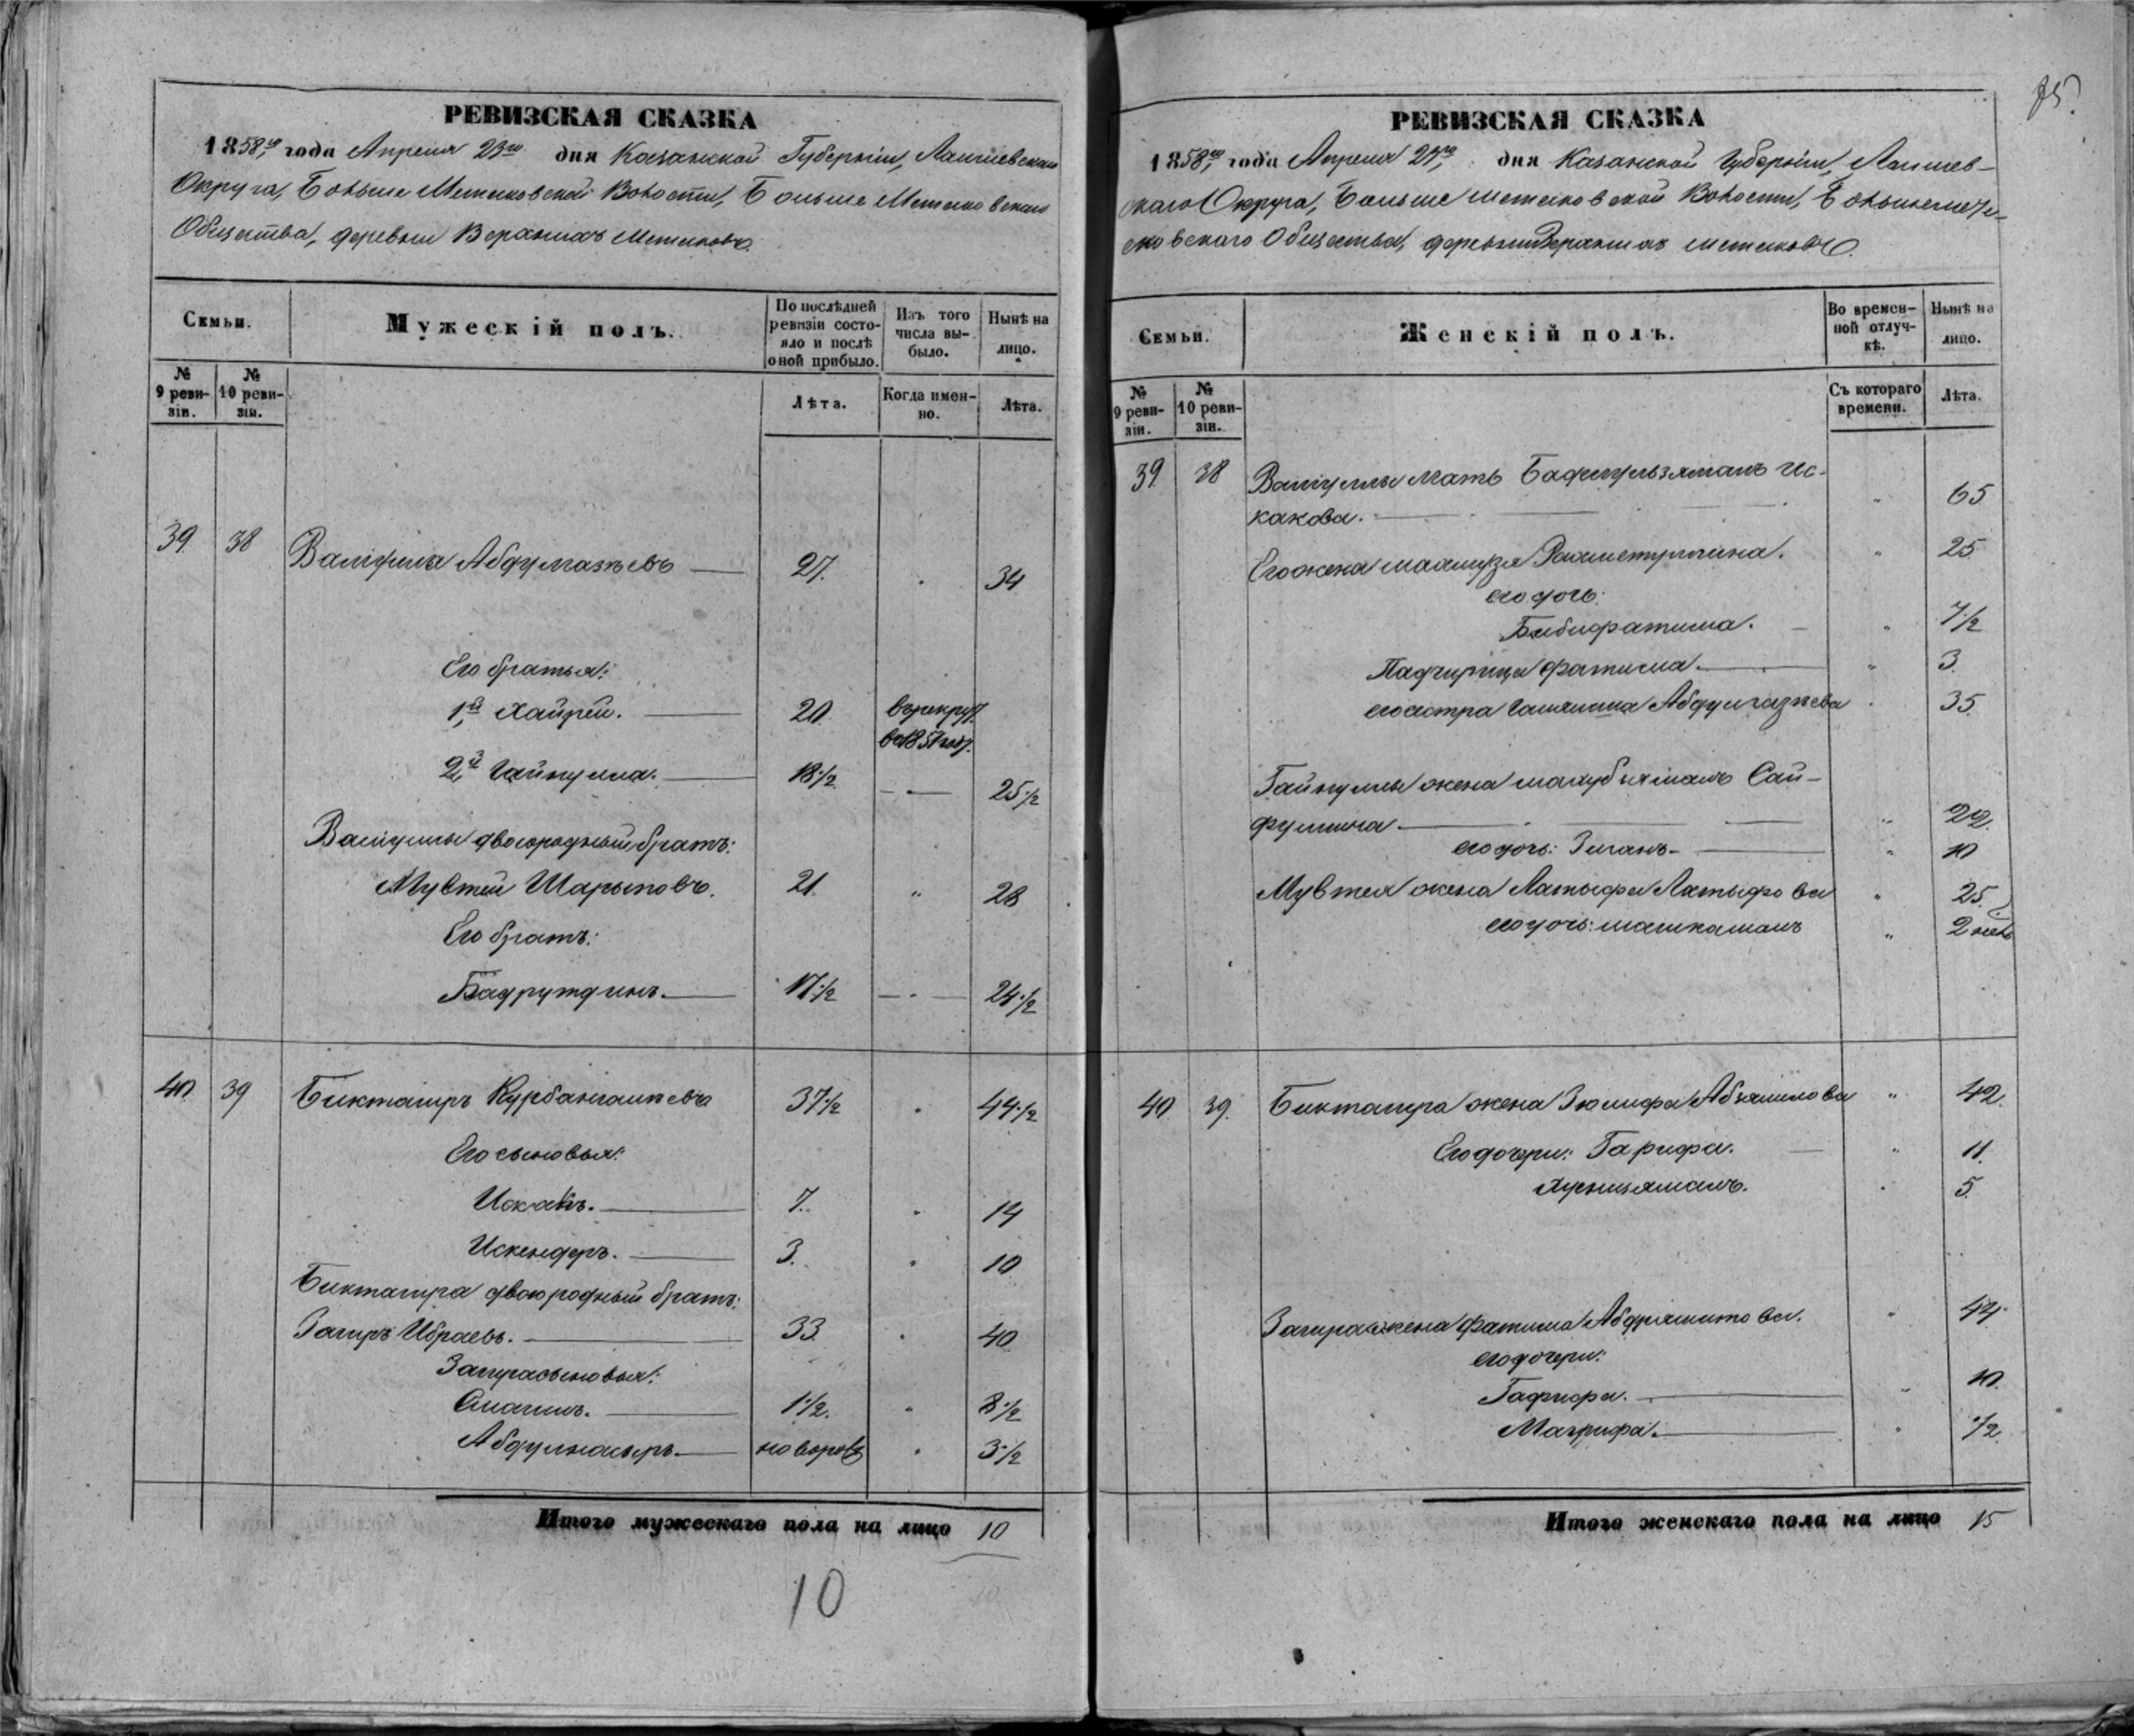 85
РЕВИЗСКАЯ СКАЗКА
1858го года Апреля 23го дня Казанской Губернии, Лаишевскаго
Округа, Больше Метесковской Волости, Больше Метесковскаго
Общества, деревни Верхнихъ Метесковъ.
Семьи.
Мужескій полъ.
По послѣдней ревизіи состояло и послѣ оной прибыло.
Изъ того числа выбыло.
Нынѣ на лицо.
№ 9 ревизіи.
№ 10 ревизіи.
Лѣта.
Когда именно.
Лѣта.
39. 38 Валіулла Абдулгазѣевъ 27. 34
Его братья:
1й Хайрей. 20. въ рекрут. въ 1851 год.
2й Гайнулла. 18 1/2 25 1/2
Валіуллы двоюродный братъ:
Мувтей Шарыповъ. 21. 28
Его братъ:
Бадрутдинъ. 17 1/2 24 1/2
40. 39 Биктагиръ Курбангалеевъ 37 1/2 44 1/2
Его сыновья:
Искакъ. 7. 14
Искендеръ. 3. 10
Биктагира двоюродный братъ:
Загиръ Ибраевъ. 33. 40
Загира сыновья:
1 1/2. 8 1/2
Абдулнасыръ. новорож 3 1/2
Итого мужескаго пола на лицо 10
10
РЕВИЗСКАЯ СКАЗКА
1858го года Апреля 23го дня Казанской Губерніи, Лаишев-
скаго Округа, Больше Метесковской Волости, Больше Мете-
сковскаго Общества, деревни Верхнихъ Метесковъ.
Семьи.
Женскій полъ.
Во временной отлучкѣ.
Нынѣ на лицо.
№ 9 ревизіи.
№ 10 ревизіи.
Съ котораго времени.
Лѣта.
39. 38 Валіуллы мать Бадигульзяманъ Ис-
какова. 65
Его жена 25.
его дочь:
Бибифатима. 7 1/2
Падчерица Фатима. 3.
его сестра Абдулгазѣева 35.
Гайнуллы жена Сай-
фуллина 22.
его дочь: 10
Мувтея жена Латыфа Латыфова 25.
его дочь: 2 нед
40. 39. Биктагира жена Зюлифа 42.
Его дочери: Гарифа. 11.
5.
Загира жена Фатима Абдряшитова. 44.
его дочери:
Гафифа. 10.
Магрифа. 1/2.
Итого женскаго пола на лицо 15